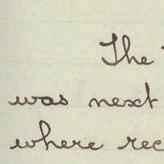 The
was next
where rec